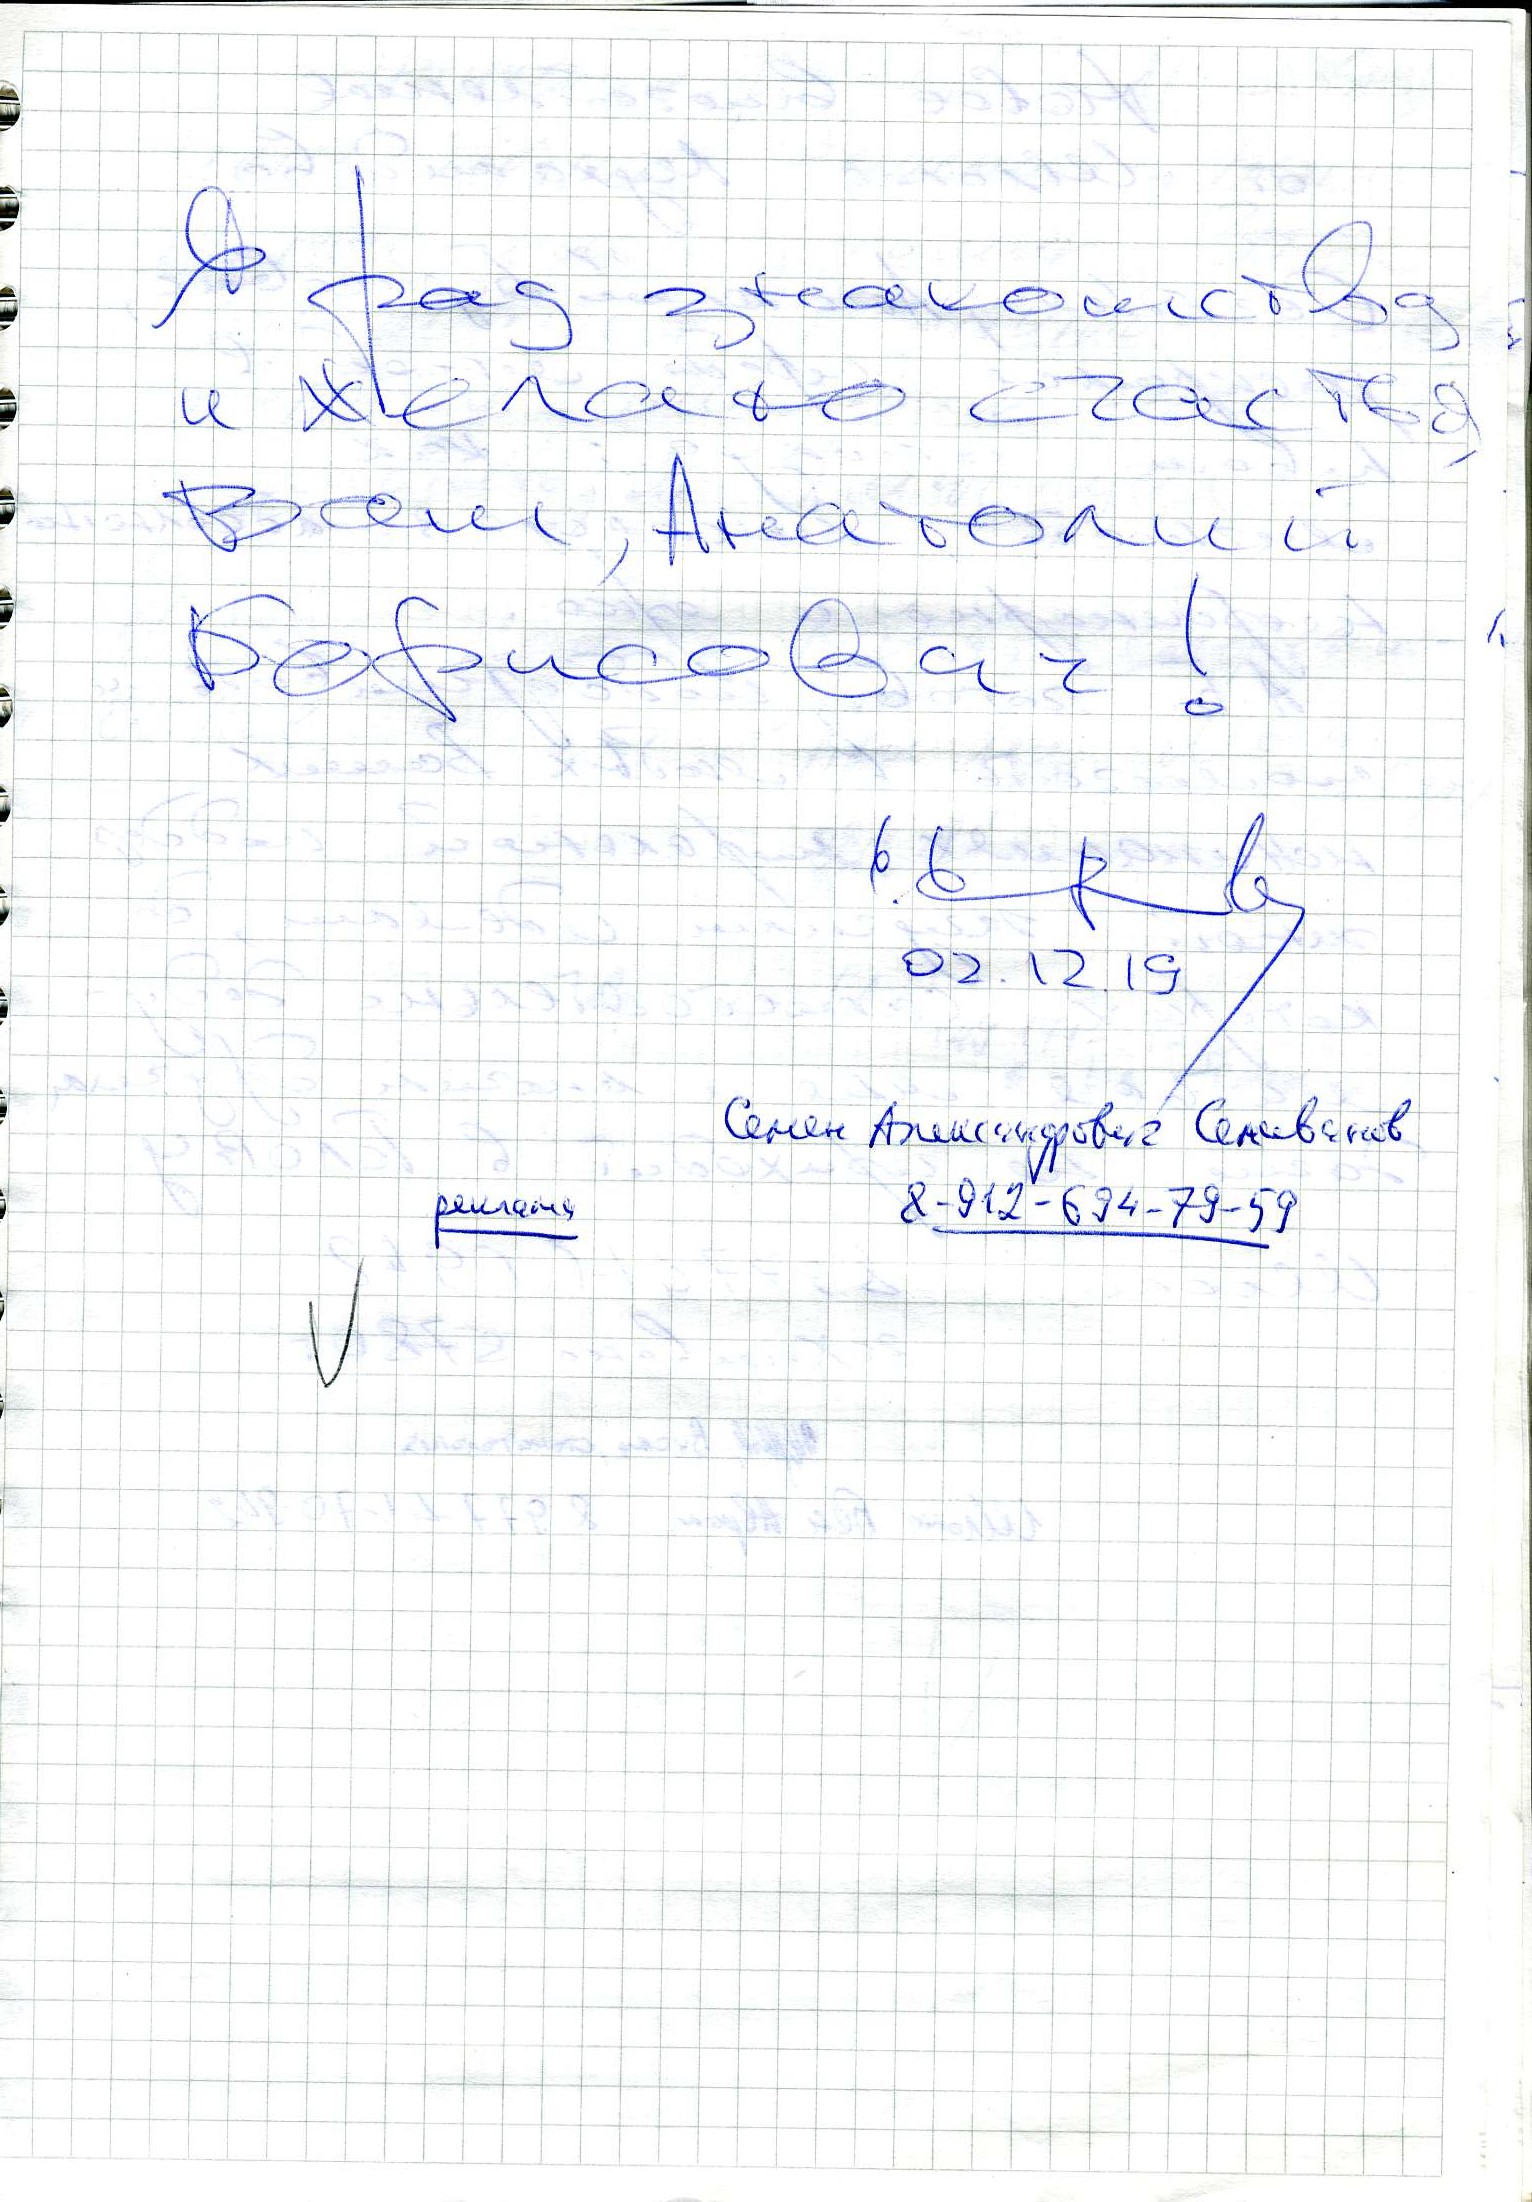 Я рад знакомству
и желаю счастья,
Вам, Анатолий
Борисович!
02.12.19
Семен Александрович Селиванов
реклама 8-912-694-79-59